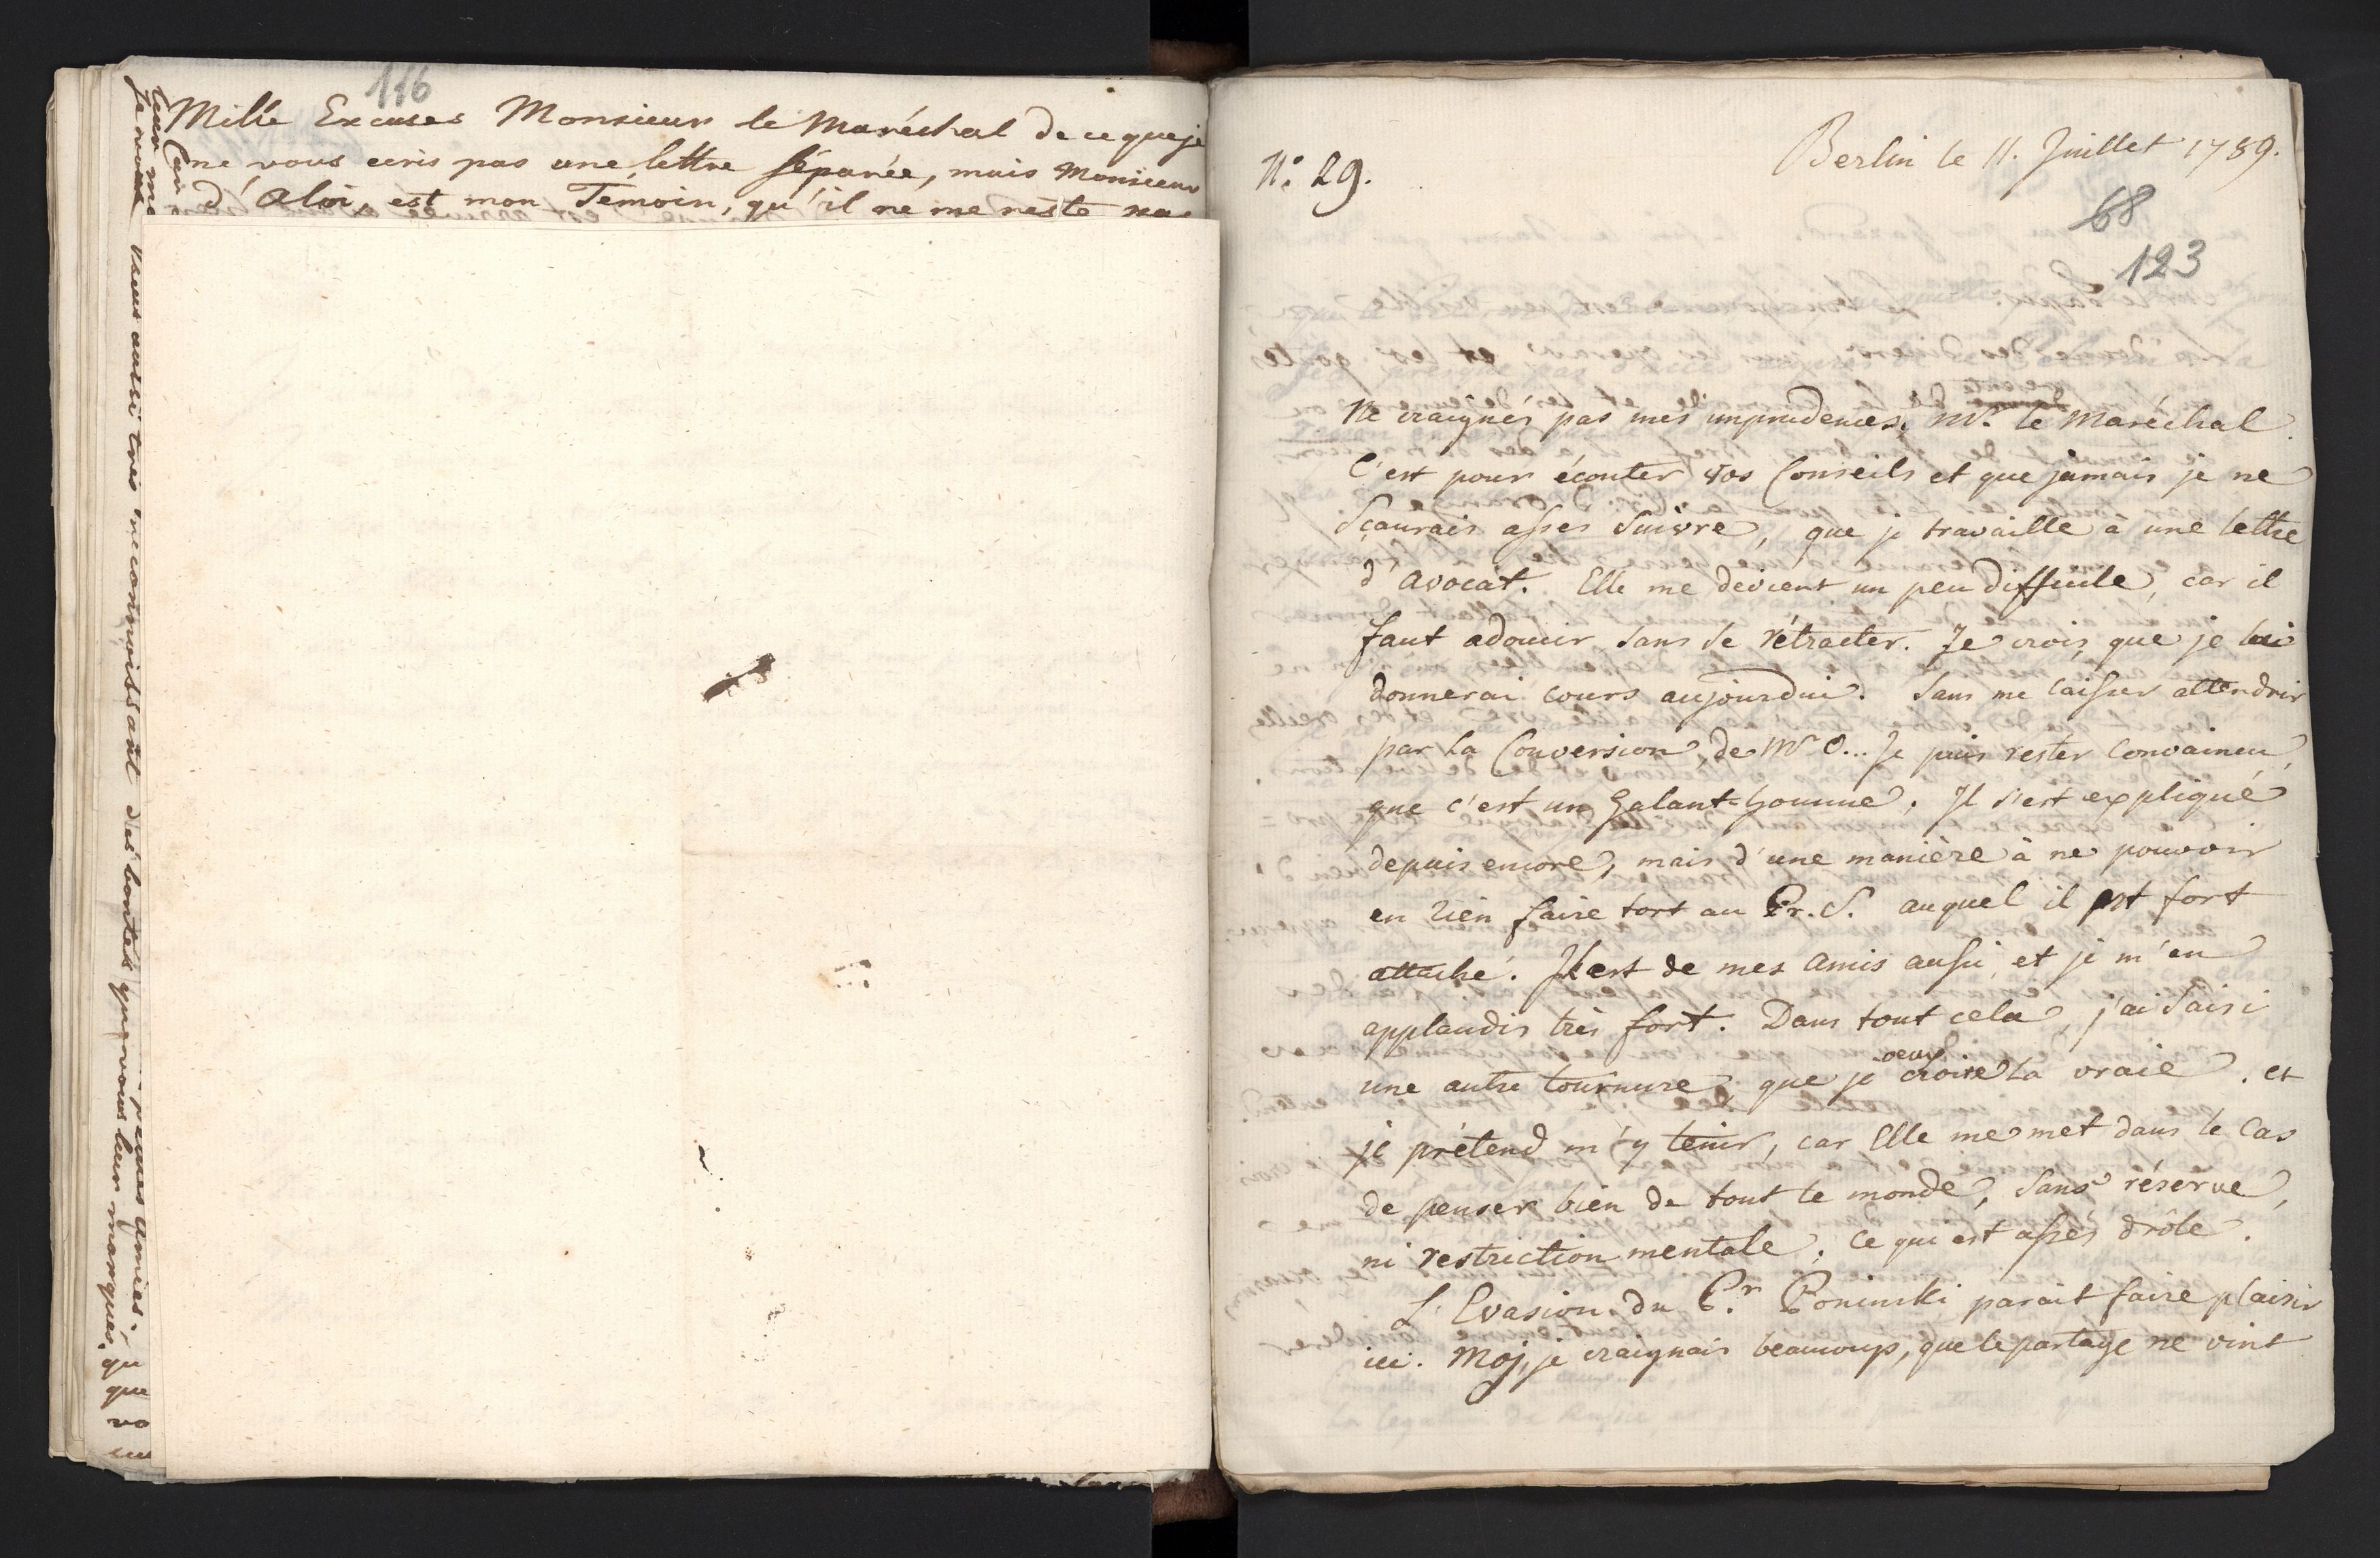 116
Mille Excuses Monsieur le Maréchal de ce que je
ne vous ecris pas une lettre séparée, mais Monsieur
d'Aloi, est mon Temoin, qu'il ne me reste
vous aussi tres reconnoissant des bontés que vous leur marques, qu
N: 29.
Berlin le 11. Juillet 1789.
68
123
Ne craignés pas mes imprudences, Mr. le Maréchal.
C'est pour écouter vos Conseils et que jamais je ne
Sçaurais asses Suivre, que je travaille à une lettre
d'avocat. Elle me devient un peu difficile, car il
faut adoucir sans se rétracter. Je crois que je lui
donnerai cours aujourdui. Sans me laisser attendrir
par la Conversion, de Mr O... Je puis rester Convaincu,
que c'est un Galant-homme. Il s'est expliqué
depuis encore, mais d'une manière à ne pouvoir
en rien faire tort au Pr. S. auquel il est fort
attaché. Il est de mes amis aussi, et je m'en
applaudis très fort. Dans tout cela, j'ai saisi
une autre tournure, que je veux croire la vraie. et
je prétend m'y tenir, car Elle me met dans le Cas
de penser bien de tout le monde, sans réserve,
ni restriction mentale. Ce qui est assés drôle.
L'Evasion du Pr. Poninski parait faire plaisir
ici. Moj, je craignais beaucoup, que le partage ne vint